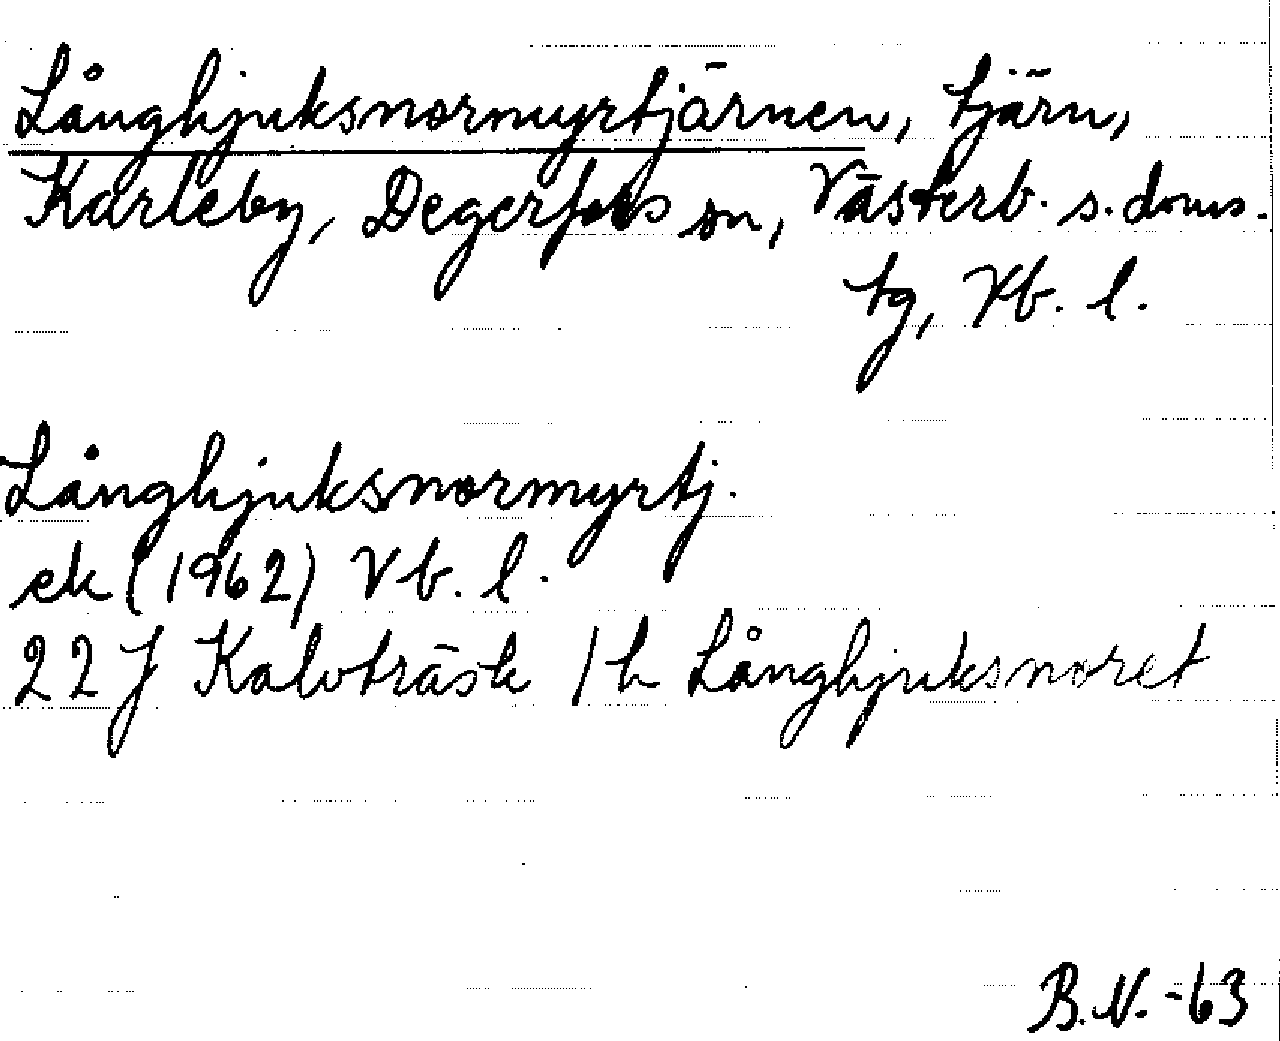 Långhjuksnormyrtjärnen, tjärn,
Karleby, Degerfors sn, Västerb. s. doms.
tg, Vb. l.
Långhjuksnormyrtj.
ek (1962) Vb. l.
22 J Kalvträsk 1 h Långhjuksnoret
B.N. -63